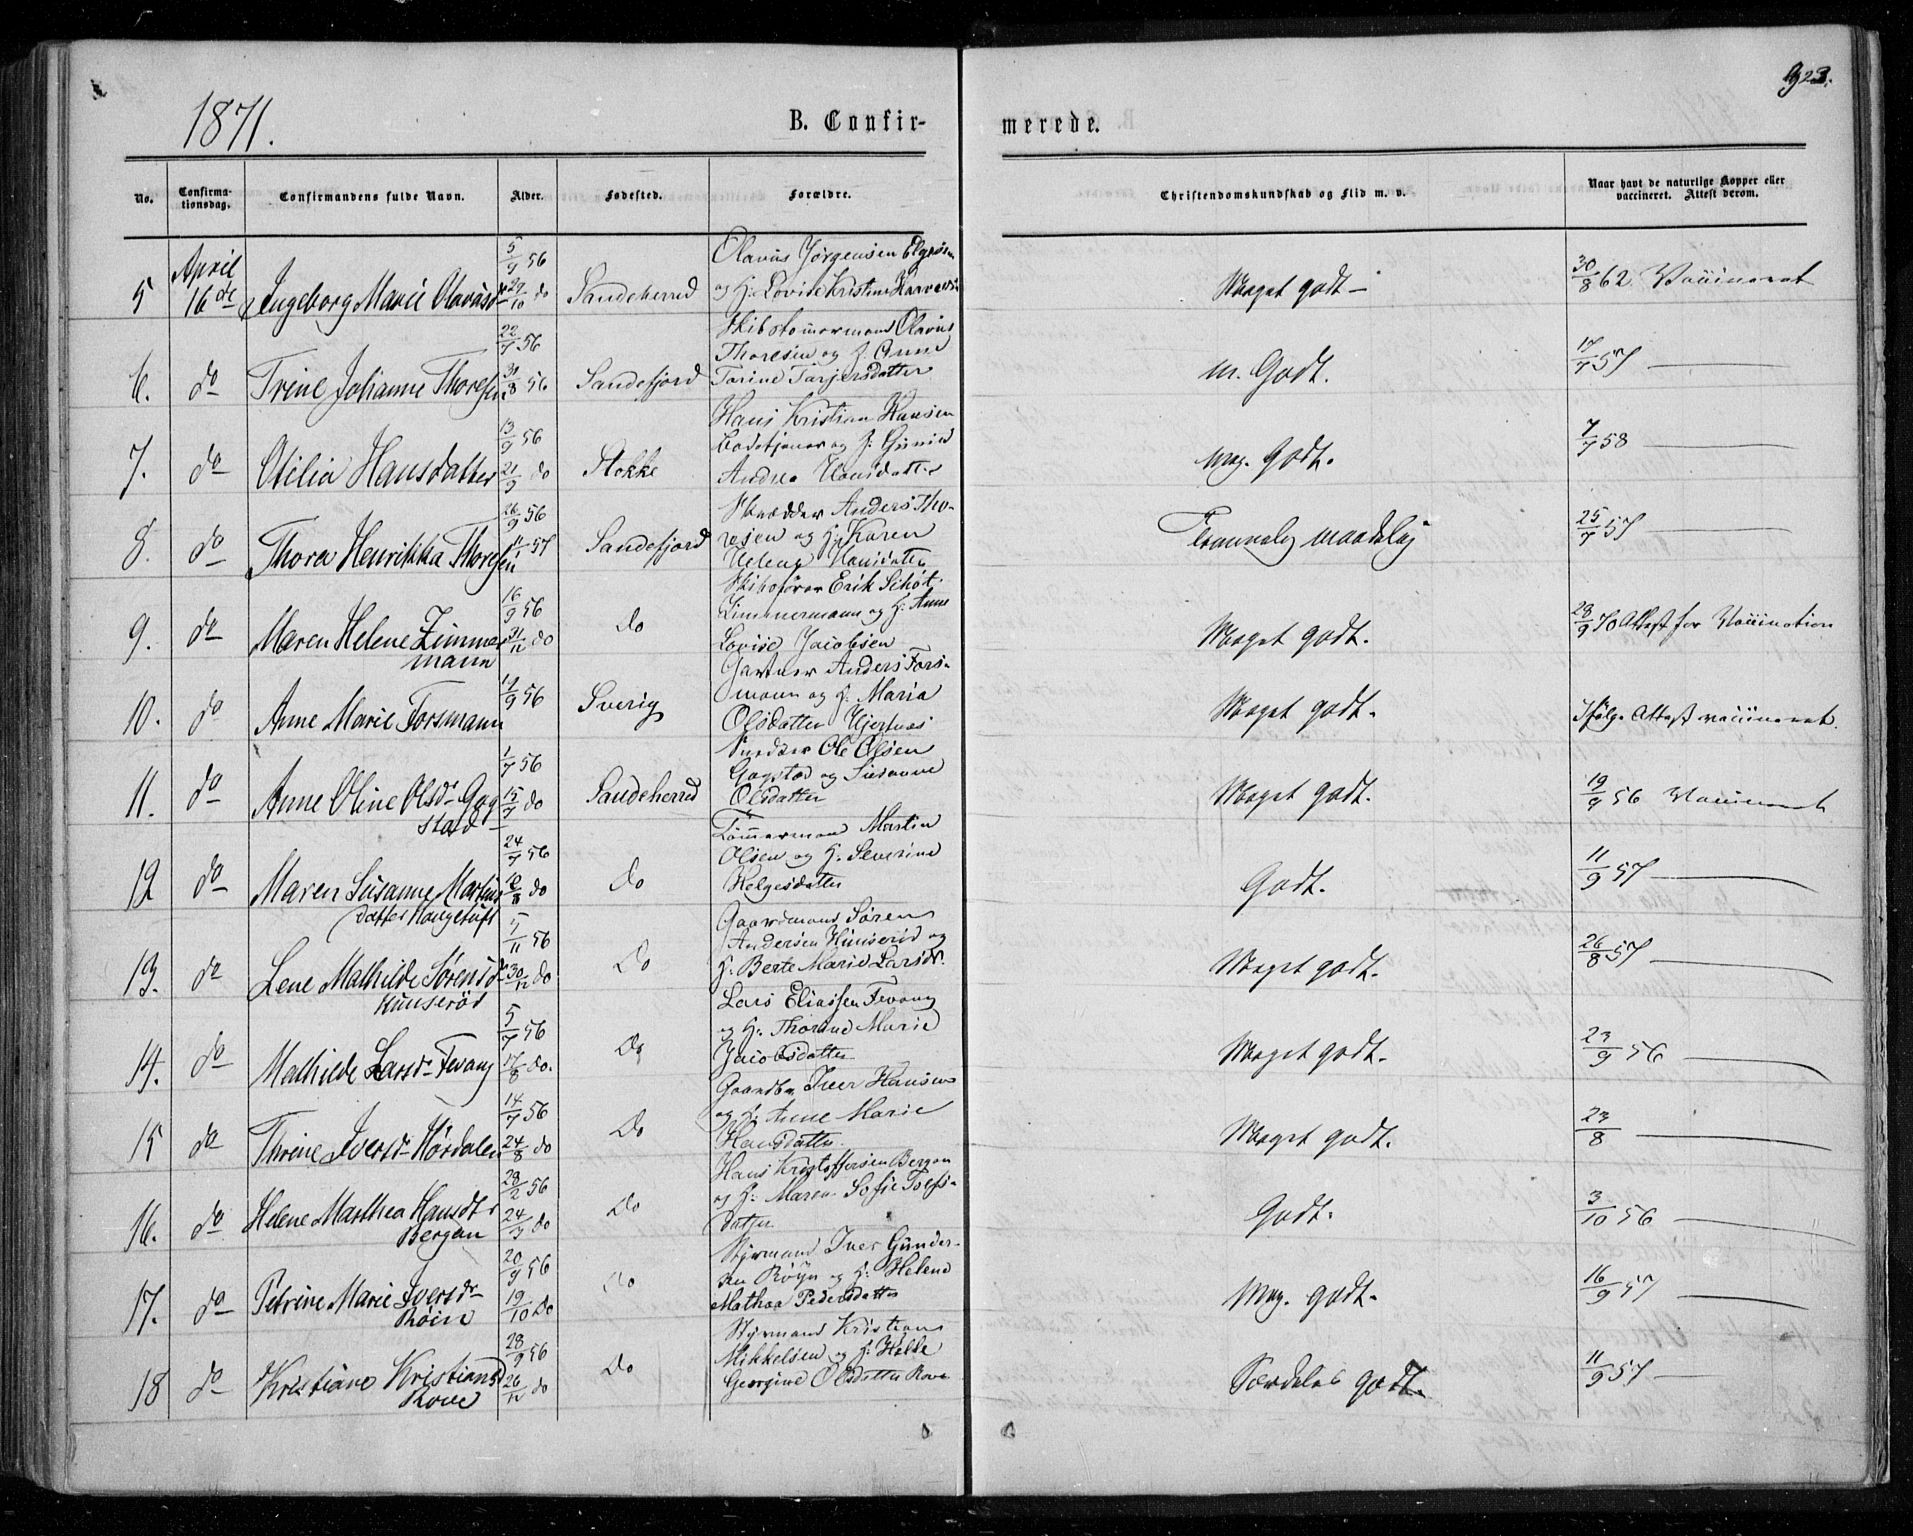 923.
1871.
B. Confir-
merede.
No.
Confirma-
tionsdag.
Confirmandens fulde Navn.
Alder.
Fødested.
Forældre.
Christendomskundskab og Flid m. v.
Naar havt de naturlige Kopper eller
vaccineret. Attest derom.
April
5 16de Ingeborg Marie Olavusdr 5/9 56 27/10 do Sandeherred
Olavus Jørgensen
og H. Lovise Kristine
Meget godt - 30/8 62 Vaccineret
6. do Trine Johanne Thoresen 22/7 56 30/8 56 Sandefjord
Skibstømermand Olavus
Thoresen og H. Anne
Torine Tarjersdatter
m. Godt. 17/7 57
7. do Otilia Hansdatter 13/9 56 21/9 do Stokke
Hans Kristian Hansen
Badetjener og H. Gunild
Andrea Hansdatter
meg. Godt. 7/7 58
8. do Thora Henrikka Thoresen 26/9 56 57 Sandefjord
Skrædder Anders Tho-
resen og H. Karen
Helene Hansdatter
Temmelig maadelig 25/7 57
9. do Maren Helene Zimmer
mann 16/9 56 31/12 do do
Skibsfører Erik Schøt
Zimmermann og H. Anne
Lovise Jacobsen
Meget godt. 28/9 70 Attest for Vaccination
10. do Anne Marie Forsmann 19/9 56 Sverig
Gartner Anders Fors-
mann og H. Maria
Olsdatter Hjertnæs
Meget godt. Ifølge Attest vaccineret.
11. do Anne Oline Olsdr Gog
stad 1/7 56 15/7 do Sandeherred
Snedker Ole Olsen
Gogstad og Susanne
Olsdatter
Meget godt. 19/9 56 Vaccineret
12 do Maren Susanne Martins
datter Haugetuft 24/7 56 10/8 do Do
Tømmermand Martin
Olsen og H. Severine
Helgesdatter
Godt. 11/9 57
13. do Lene Mathilde Sørensdr
Hunserød 5/11 56 30/12 do Do
Gaardmand Søren
Andersen Hunserød og
H. Berte Marie Larsdr.
Meget godt. 26/8 57
14. do Mathilde Larsdr Fevang 5/7 56 17/8 do. Do
Lars Eliassen Fevang
og H. Thorine Marie
Jacobsdatter
Meget godt. 23/9 56
15 do Thrine Iversdr Mørdalen 14/7 56 24/8 do Do
Gaardbr. Iver Hansen
og H. Anne Marie
Hansdatter.
Meget godt. 23/8
16. do Helene Marthea Hansdtr
Bergan 28/2 56 24/3 do Do
Hans Kristoffersen Bergan
og H. Maren Sofie Tolfs-
datter
Godt. 3/10 56
17. do Petrine Marie Iversdr
Røin 20/9 56 19/10 Do Do
Styrmand Iver Gunder-
sen Røyn og H. Helene
Mathea Pedersdatter
Meg. godt. 16/9 57
18 do Kristiane Kristiansd
Rove 28/9 56 26/12 do Do
Styrmand Kristian
Mikkelsen og H. Helle
Georgine Olsdatter Rove
Særdeles godt. 11/9 57